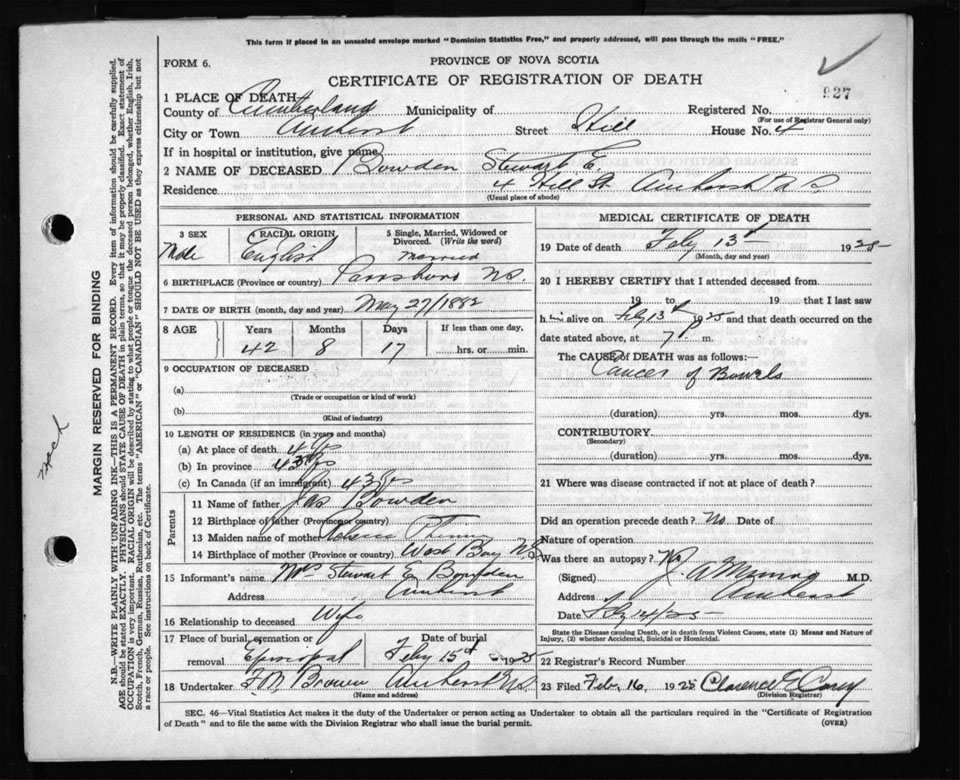 This form if placed in an unsealed envelope marked "Dominion Statistics Free," and properly addressed, will pass through the mails "FREE."
FORM 6.
PROVINCE OF NOVA SCOTIA
CERTIFICATE OF REGISTRATION OF DEATH
927
1 PLACE OF DEATH
County of Cumberland Municipality of Registered No.
(For use of Registrar General only)
City or Town Amherst Street Hill House No. 4
If in hospital or institution, give name
2 NAME OF DECEASED Bowden Stewart E.
Residence 4 Hill St. Amherst N S
(Usual place of abode)
PERSONAL AND STATISTICAL INFORMATION
3 SEX 4 RACIAL ORIGIN 5 Single, Married, Widowed or Divorced. (Write the word)
Male English Married
6 BIRTHPLACE (Province or country) Parrsboro NS.
7 DATE OF BIRTH (month, day and year) May 27/1882
8 AGE Years Months Days If less than one day,
42 8 17 hrs. or min.
9 OCCUPATION OF DECEASED
(a)
(Trade or occupation or kind of work)
(b)
(Kind of industry)
10 LENGTH OF RESIDENCE (in years and months)
(a) At place of death 4 yrs
(b) In province 43 yrs
(c) In Canada (if an immigrant) 43 yrs
Parents
11 Name of father Jas Bowden
12 Birthplace of father (Province or country)
13 Maiden name of mother Rebecca
14 Birthplace of mother (Province or country) West Bay NS
15 Informant's name Mrs Stewart E Bowden
Address Amherst
16 Relationship to deceased Wife
17 Place of burial, cremation or removal Episcopal Date of burial Feby 15th 1925
18 Undertaker Brown Amherst N.S.
(Name and address)
MEDICAL CERTIFICATE OF DEATH
19 Date of death Feby 13th 1925
(Month, day and year)
20 I HEREBY CERTIFY that I attended deceased from
19 to 19 that I last saw
h im alive on Feby 13th 1925 and that death occurred on the
date stated above, at 7 p. m.
The CAUSE of DEATH was as follows:—
Cancer of Bowels
(duration) yrs. mos. dys.
CONTRIBUTORY
(Secondary)
(duration) yrs. mos. dys.
21 Where was disease contracted if not at place of death?
Did an operation precede death? No. Date of
Nature of operation
Was there an autopsy? No
(Signed) M.D.
Address Amherst
Date Feby 14/25
State the Disease causing Death, or in death from Violent Causes, state (1) Means and Nature of Injury, (2) whether Accidental, Suicidal or Homicidal.
22 Registrar's Record Number
23 Filed Feb. 16, 1925 Clarence E Casey
(Division Registrar)
SEC. 46—Vital Statistics Act makes it the duty of the Undertaker or person acting as Undertaker to obtain all the particulars required in the "Certificate of Registration
of Death" and to file the same with the Division Registrar who shall issue the burial permit. (OVER)
MARGIN RESERVED FOR BINDING
N.B.—WRITE PLAINLY WITH UNFADING INK—THIS IS A PERMANENT RECORD. Every item of information should be carefully supplied.
AGE should be stated EXACTLY. PHYSICIANS should STATE CAUSE OF DEATH in plain terms, so that it may be properly classified. Exact statement of
OCCUPATION is very important. RACIAL ORIGIN will be described by stating to what people or tongue the deceased person belonged, whether English, Irish,
Scotch, French, German, Russian, Ruthenian, etc. The terms "AMERICAN" or "CANADIAN" SHOULD NOT BE USED as they express citizenship but not
a race or people. See instructions on back of Certificate.